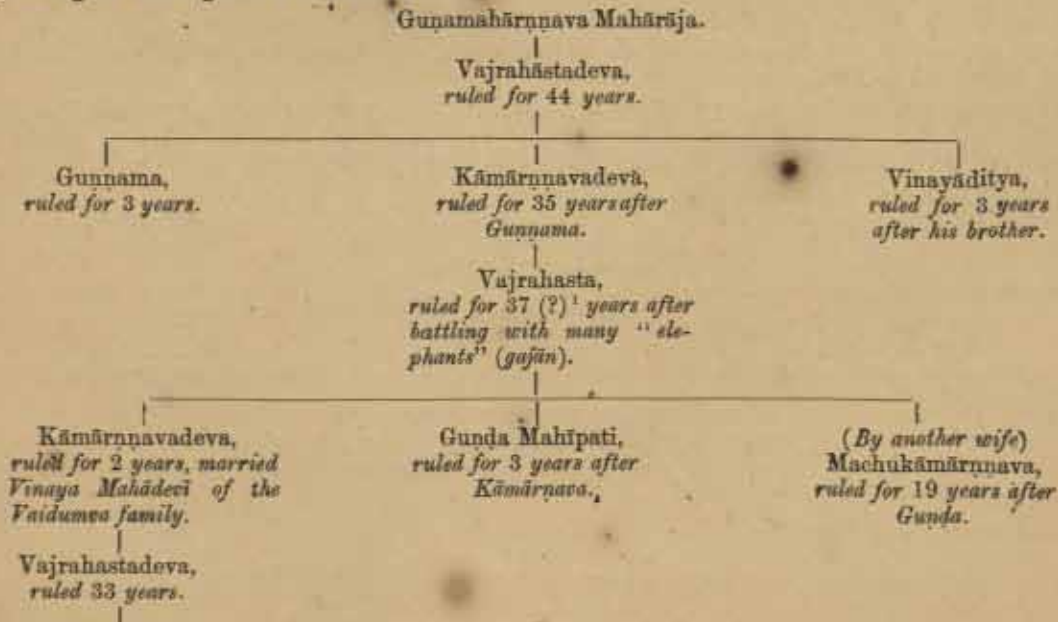 Guṇamahārṇṇava Mahārāja.
Vajrahastadeva,
ruled for 44 years.
Guṇṇama,
ruled for 3 years.
Kāmārṇṇavadeva,
ruled for 35 years after
Guṇṇama.
Vinayāditya,
ruled for 3 years
after his brother.
Vajrahasta,
ruled for 37 (?)¹ years after
battling with many "ele-
phants" (gajān).
Kāmārṇṇavadeva,
ruled for 2 years, married
Vinaya Mahādevī of the
Vaidumva family.
Guṇḍa Mahīpati,
ruled for 3 years after
Kāmārṇava.
(By another wife)
Machukāmārṇṇava,
ruled for 19 years after
Guṇḍa.
Vajrahastadeva,
ruled 33 years.